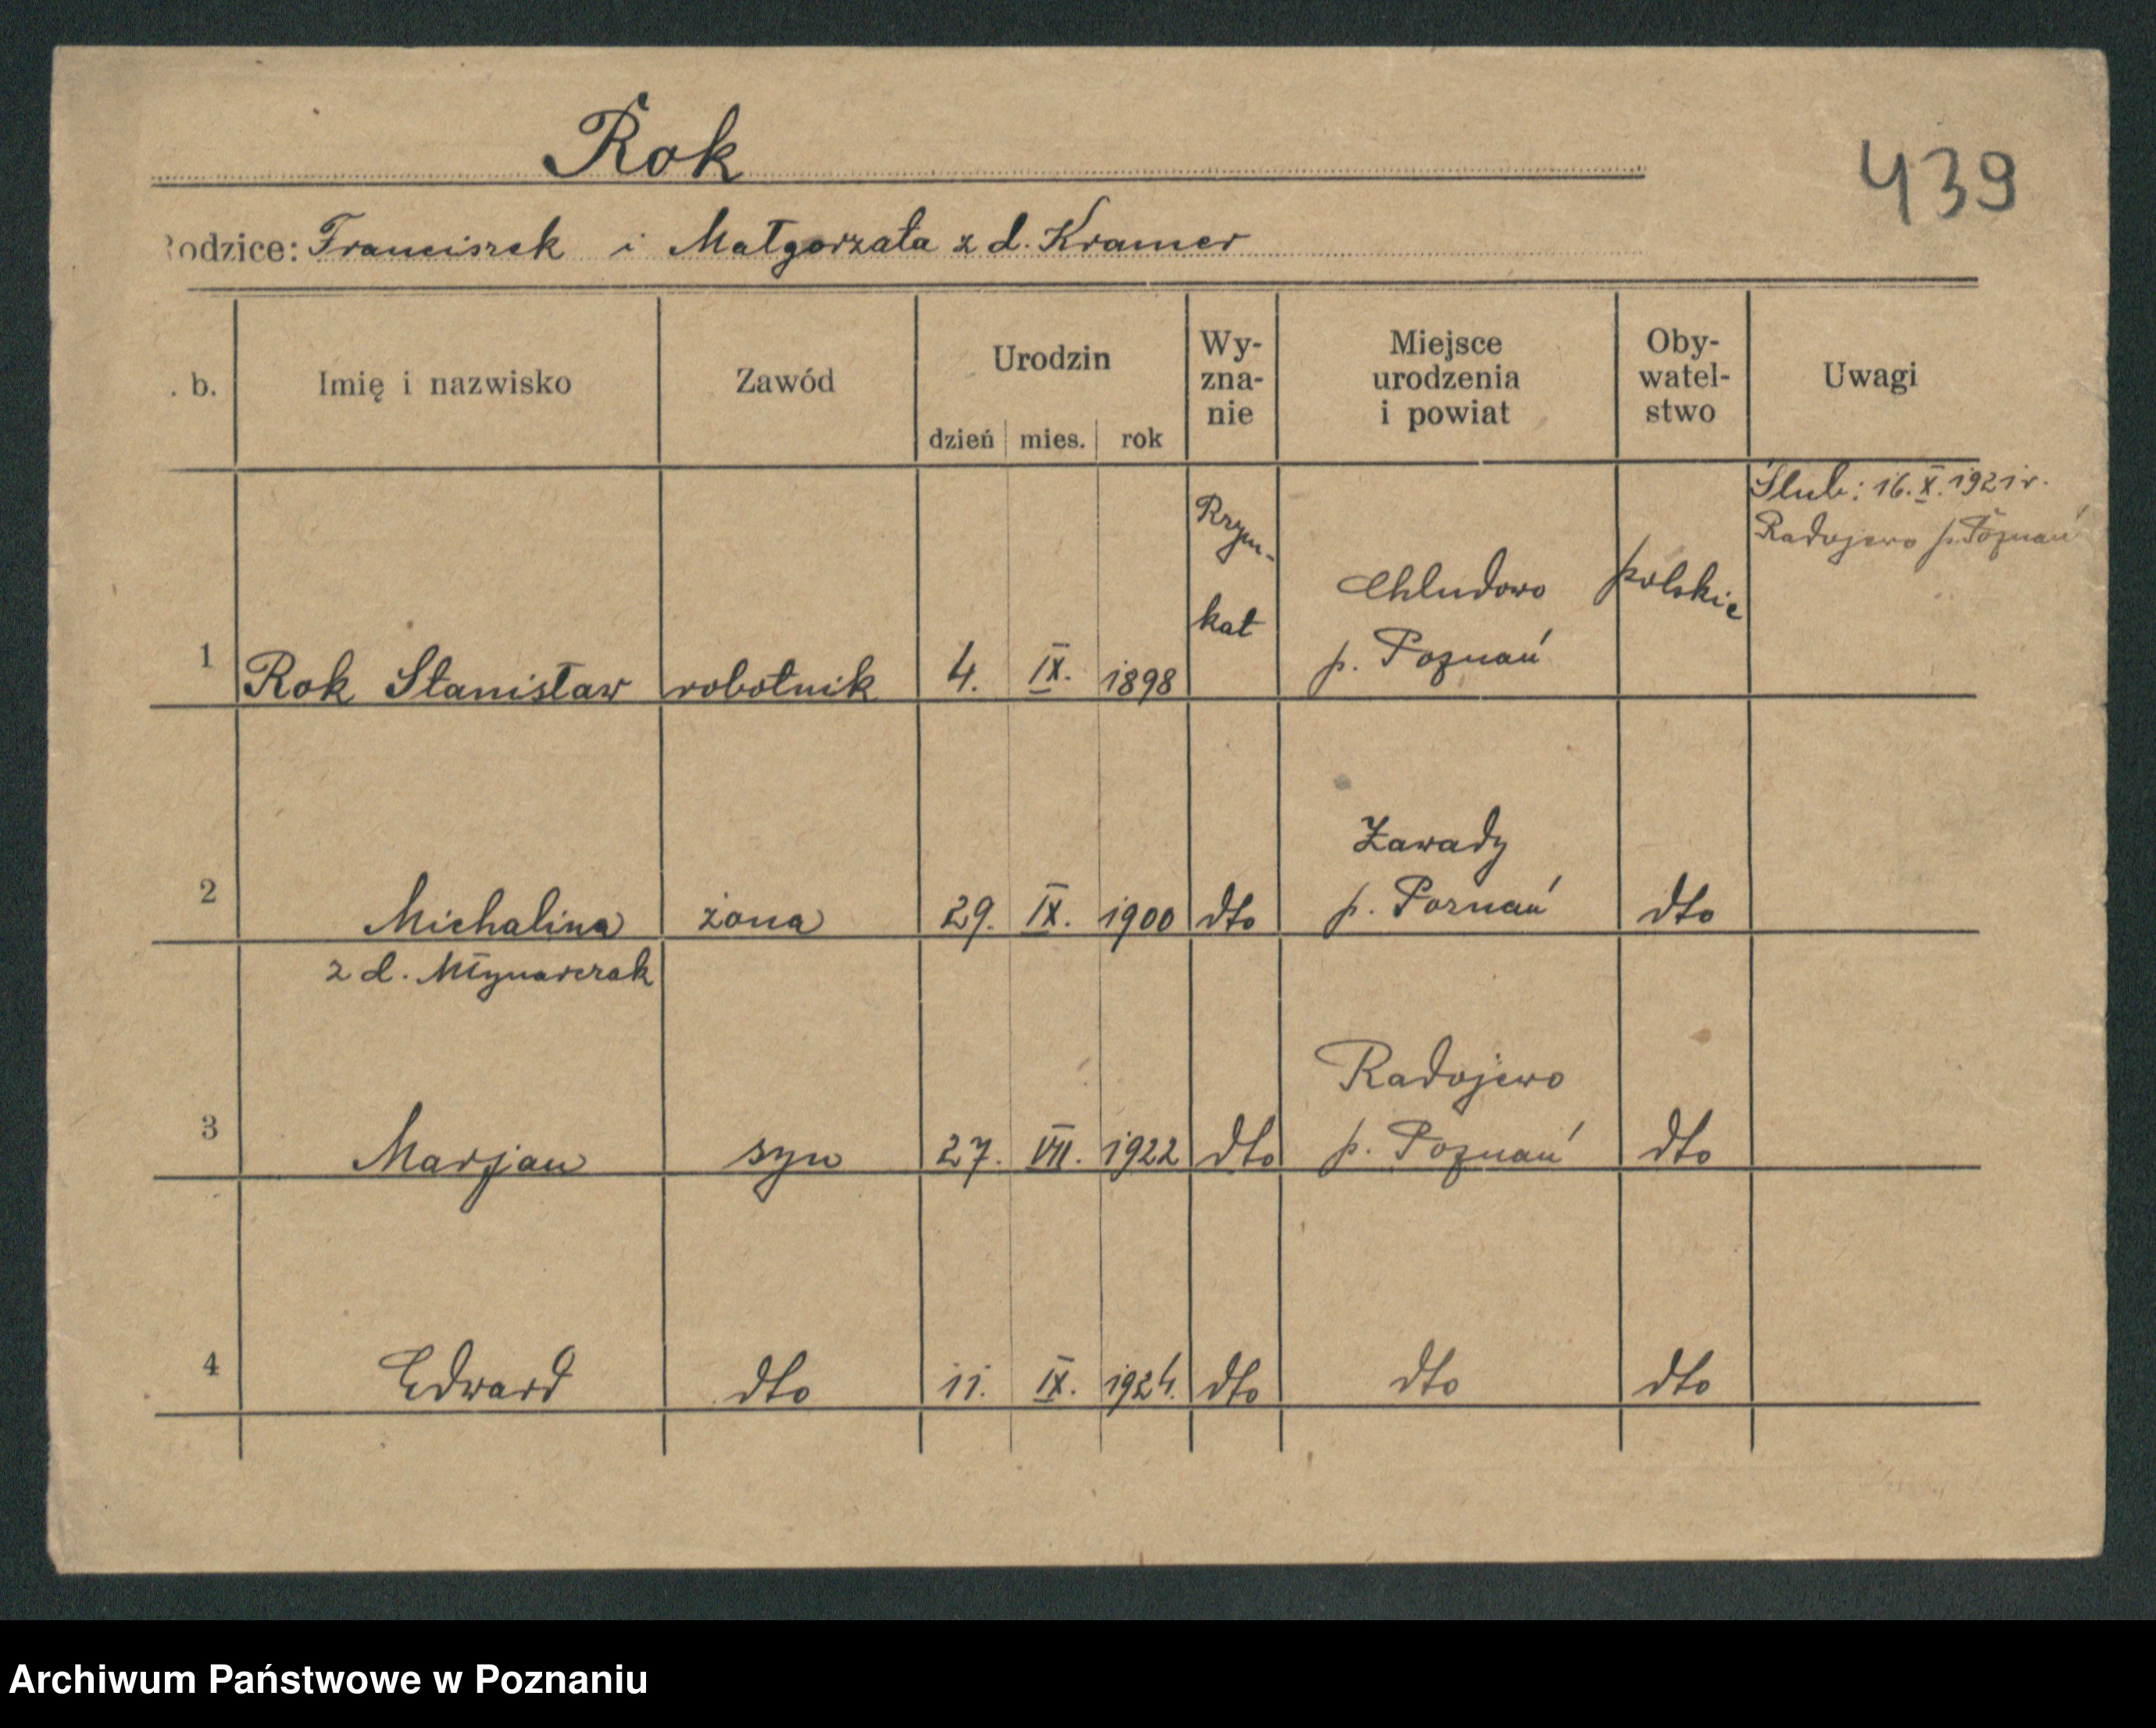 Rok
439
Rodzice: Franciszek i Małgorzata z d. Kramer
. b. Imię i nazwisko Zawód Urodzin dzień mies. rok Wy-zna-nie Miejsce urodzenia i powiat Oby-watel-stwo Uwagi
1 Rok Stanisław robotnik 4. IX. 1898 Rzym-kat Chludowo p. Poznań polskie Ślub: 16. X. 1921 r. Radojewo p. Poznań
2 Michalina żona 29. IX. 1900 dto Zawady p. Poznań dto
z d. Młynarczak
3 Marjan syn 27. VII. 1922 dto Radojewo p. Poznań dto
4 Edward dto 11. IX. 1924. dto dto dto
Archiwum Państwowe w Poznaniu